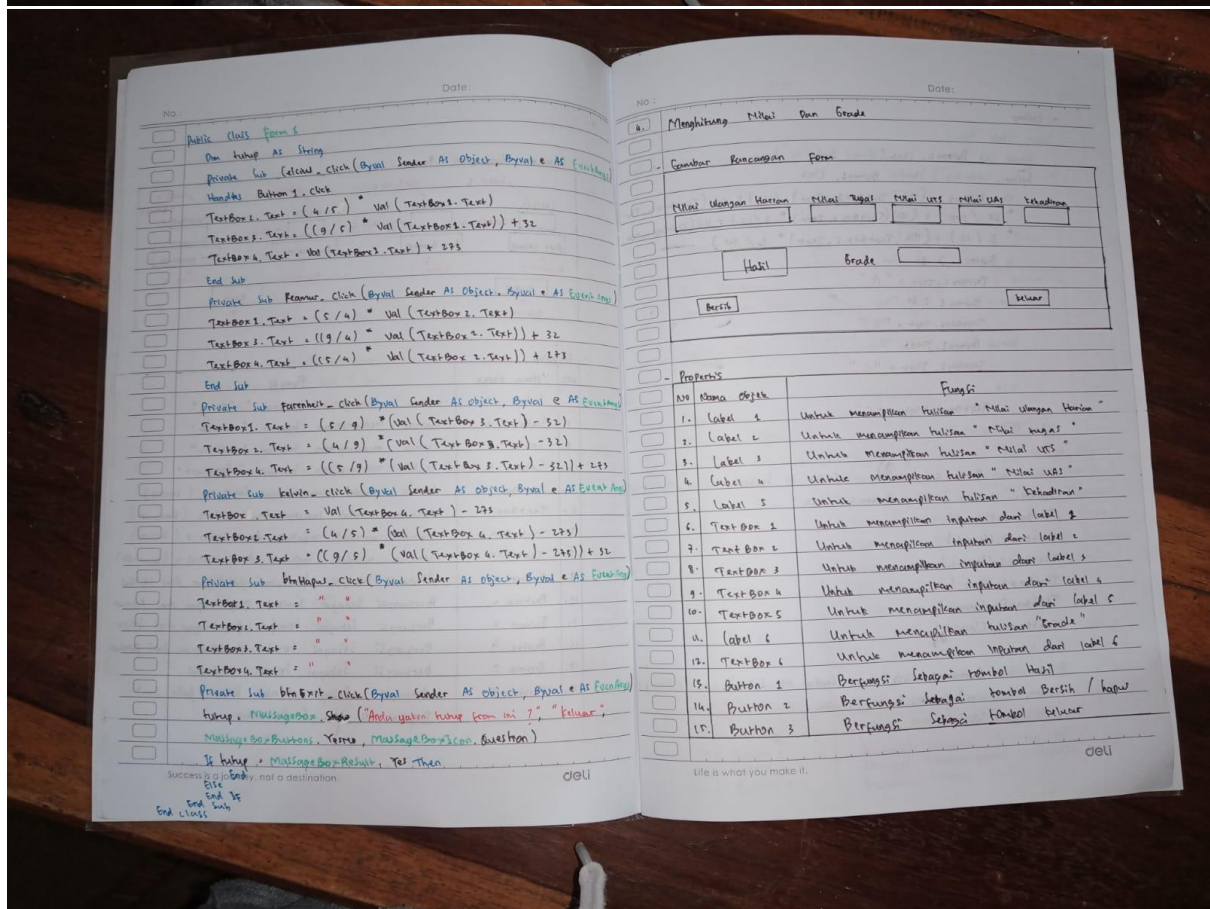 No
Date:
Public Class Form 5
Dim tutup As String
Private Sub Celcius_Click (Byval Sender As Object, Byval e As EventArgs)
Handles Button 1. Click
TextBox 2. Text = (4/5) * Val (TextBox 1. Text)
TextBox 3. Text = ((9/5) * Val (TextBox 1. Text)) + 32
TextBox 4. Text = Val (TextBox 1. Text) + 273
End Sub
Private Sub Reamur_Click (Byval Sender As Object, Byval e As EventArgs)
TextBox 1. Text = (5/4) * Val (TextBox 2. Text)
TextBox 3. Text = ((9/4) * Val (TextBox 2. Text)) + 32
TextBox 4. Text = ((5/4) * Val (TextBox 2. Text)) + 273
End Sub
Private Sub Farenheit_Click (Byval Sender As Object, Byval e As EventArgs)
TextBox 1. Text = (5/9) * (Val (TextBox 3. Text) - 32)
TextBox 2. Text = (4/9) * (Val (TextBox 3. Text) - 32)
TextBox 4. Text = ((5/9) * (Val (TextBox 3. Text) - 32)) + 273
Private Sub kelvin_click (Byval Sender As Object, Byval e As EventArgs)
TextBox . Text = Val (TextBox 4. Text) - 273
TextBox 2. Text = (4/5) * (Val (TextBox 4. Text) - 273)
TextBox 3. Text = ((9/5) * (Val (TextBox 4. Text) - 273)) + 32
Private Sub btnHapus_Click (Byval Sender As Object, Byval e As EventArgs)
TextBox 1. Text = " "
TextBox 2. Text = " "
TextBox 3. Text = " "
TextBox 4. Text = " "
Private Sub btnExit_Click (Byval Sender As Object, Byval e As EventArgs)
tutup = MassageBox. Show ("Anda yakin tutup from ini ?", "keluar",
MassageBoxButtons. YesNo, MassageBoxIcon. Question)
If tutup = MassageBoxResult, Yes Then
End
Else
End If
End Sub
End Class
Success is a journey, not a destination.
deli
No :
Date:
4. Menghitung Nilai Dan Grade
- Gambar Rancangan Form
Nilai Ulangan Harian Nilai Tugas Nilai UTS Nilai UAS Kehadiran
Hasil Grade
Bersih keluar
- Propertis
No Nama Objek Fungsi
1. Label 1 Untuk menampilkan tulisan "Nilai Ulangan Harian"
2. Label 2 Untuk menampilkan tulisan "Nilai tugas"
3. Label 3 Untuk menampilkan tulisan "Nilai UTS"
4. Label 4 Untuk menampilkan tulisan "Nilai UAS"
5. Label 5 Untuk menampilkan tulisan "Kehadiran"
6. Text Box 1 Untuk menampilkan inputan dari label 1
7. Text Box 2 Untuk menapilkan inputan dari label 2
8. Text Box 3 Untuk menampilkan inputan dari label 3
9. Text Box 4 Untuk menampilkan inputan dari label 4
10. TextBox 5 Untuk menampilkan inputan dari label 5
11. Label 6 Untuk menapilkan tulisan "Grade"
12. TextBox 6 Untuk menampilkan inputan dari label 6
13. Button 1 Berfungsi Sebagai tombol Hasil
14. Button 2 Berfungsi Sebagai tombol Bersih / hapus
15. Button 3 Berfungsi Sebagai tombol keluar
Life is what you make it.
deli